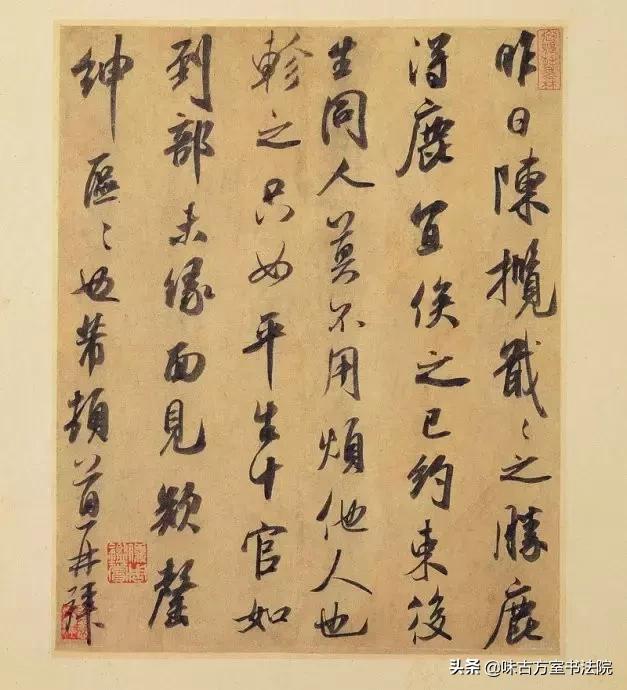 昨日陳攬戢戢之勝鹿
得鹿宜俟之已約束後
生同人莫不用煩他人也
軫之只如平生十官如
到部未緣面見欵罄
紳區區也芾頓首再拜
头条 @味古方室书法院